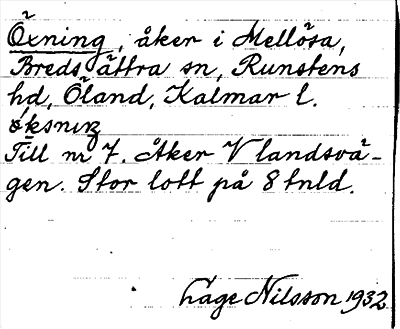 Öxning, åker i Mellösa,
Bredsättra sn, Runstens
hd, Öland, Kalmar l.
øksnıŋ
Till nr 7. Åker V landsvä-
gen. Stor lott på 8 tnld.
Åge Nilsson 1932